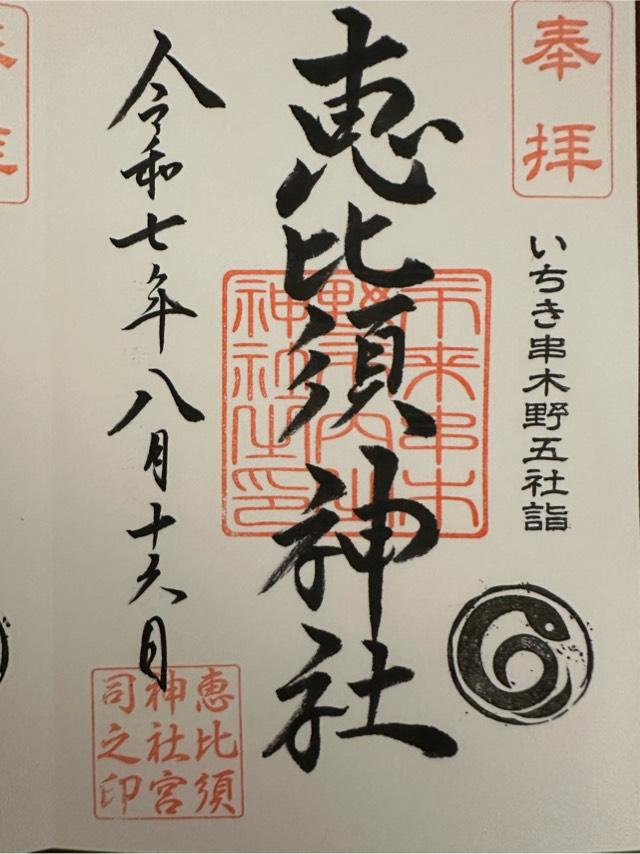 奉拝
いちき串木野五社詣
恵比須神社
令和七年八月十六日
恵比須
神社宮
司之印